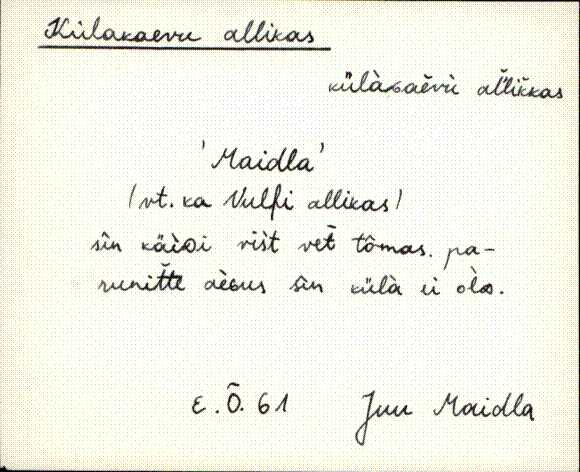 Külakaevu allikas
külàɢaèvù al̆lik̆kas
'Maidla'
/vt. ka Vulfi allikas/
sîn käìᴅi vis̀t vet̄ tômas. pa-
runit̆te aèɢus sîn külà ei òlᴅ.
E. Õ. 61
Juu Maidla